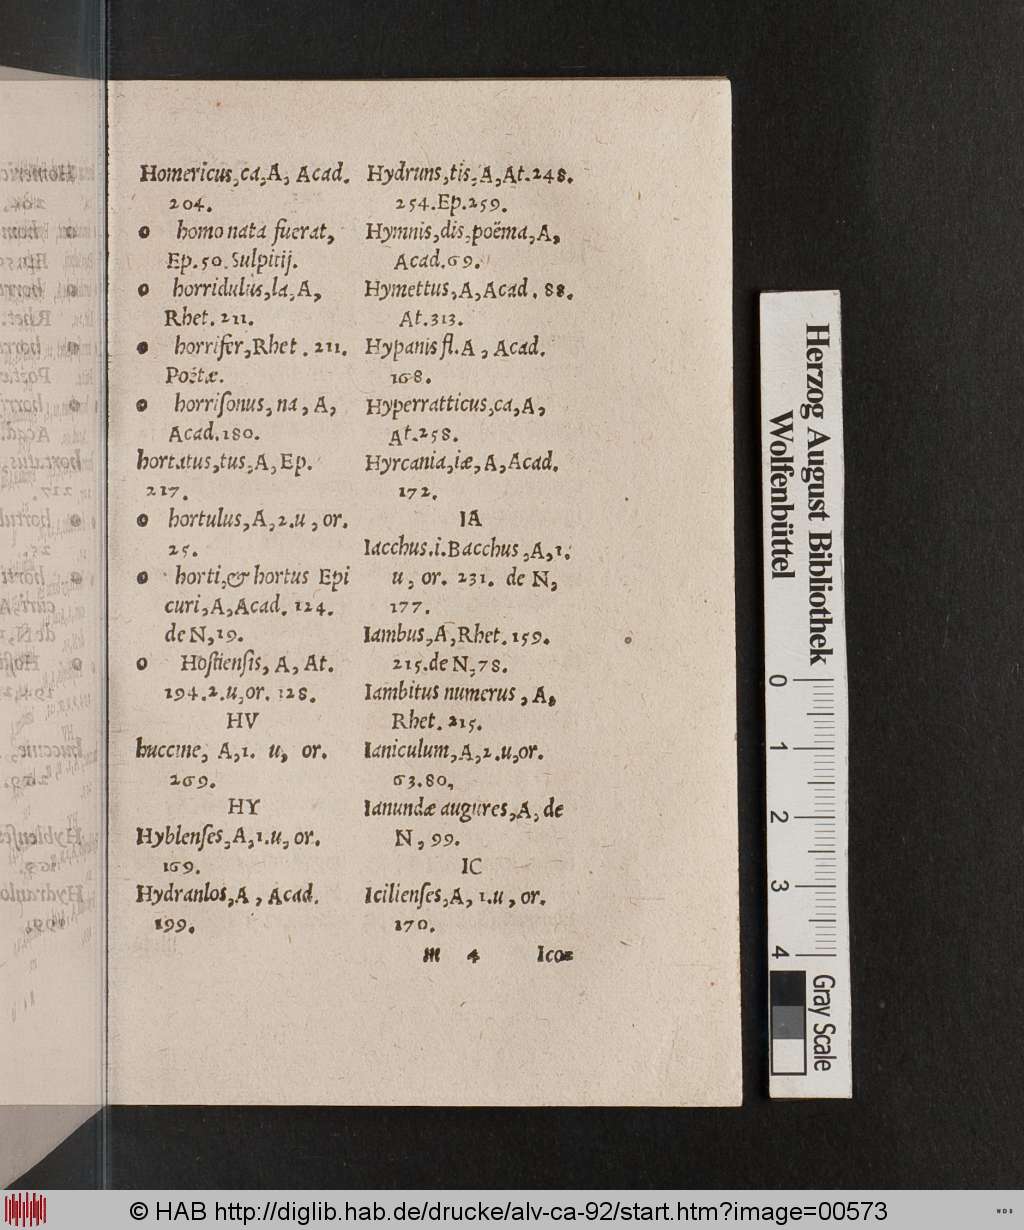 Homericus,ca,A, Acad.
204.
o homo nata fuerat,
Ep.50.Sulpitij.
o horridulus,la,A,
Rhet. 211.
o horrifer,Rhet. 211.
Poëtæ.
o horriſonus, na, A,
Acad.180.
hortatus,tus,A, Ep.
217.
o hortulus, A,2.u, or.
25.
o horti,& hortus Epi
curi,A,Acad. 124.
de N,19.
o Hoſtienſis, A, At.
194.2.u,or. 128.
HV
huccine, A,1. u, or.
269.
HY
Hyblenſes,A,1.u, or.
169.
Hydranlos,A, Acad.
199.
Hydruns,tis,A,At.248.
254.Ep.259.
Hymnis,dis,poëma,A,
Acad.69.
Hymettus,A,Acad. 88.
At.313.
Hypanis fl.A, Acad.
168.
Hyperratticus,ca,A,
At.258.
Hyrcania,iæ,A,Acad.
172.
IA
Iacchus.i.Bacchus,A,1.
u, or. 231. de N,
177.
Iambus,A,Rhet.159.
215.de N,78.
Iambitus numerus, A,
Rhet. 215.
Ianiculum,A,2.u,or.
63.80,
Ianundæ augures,A, de
N, 99.
IC
Icilienſes,A, 1.u, or.
170.
m 4 Ico=
Herzog August Bibliothek
Wolfenbüttel
0 1 2 3 4
Gray Scale
© HAB http://diglib.hab.de/drucke/alv-ca-92/start.htm?image=00573